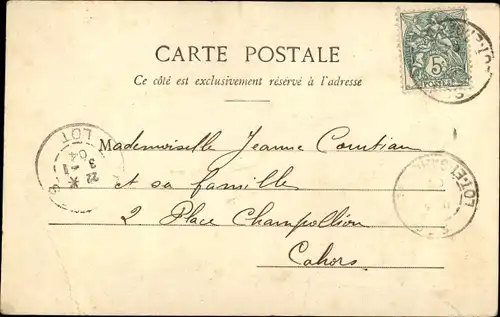 CARTE POSTALE
Ce côté est exclusivement réservé à l'adresse
5
POSTES
LOT
22
3
04
LOT-ET-
Mademoiselle Jeanne
et sa famille
2 Place Champollion
Cahors